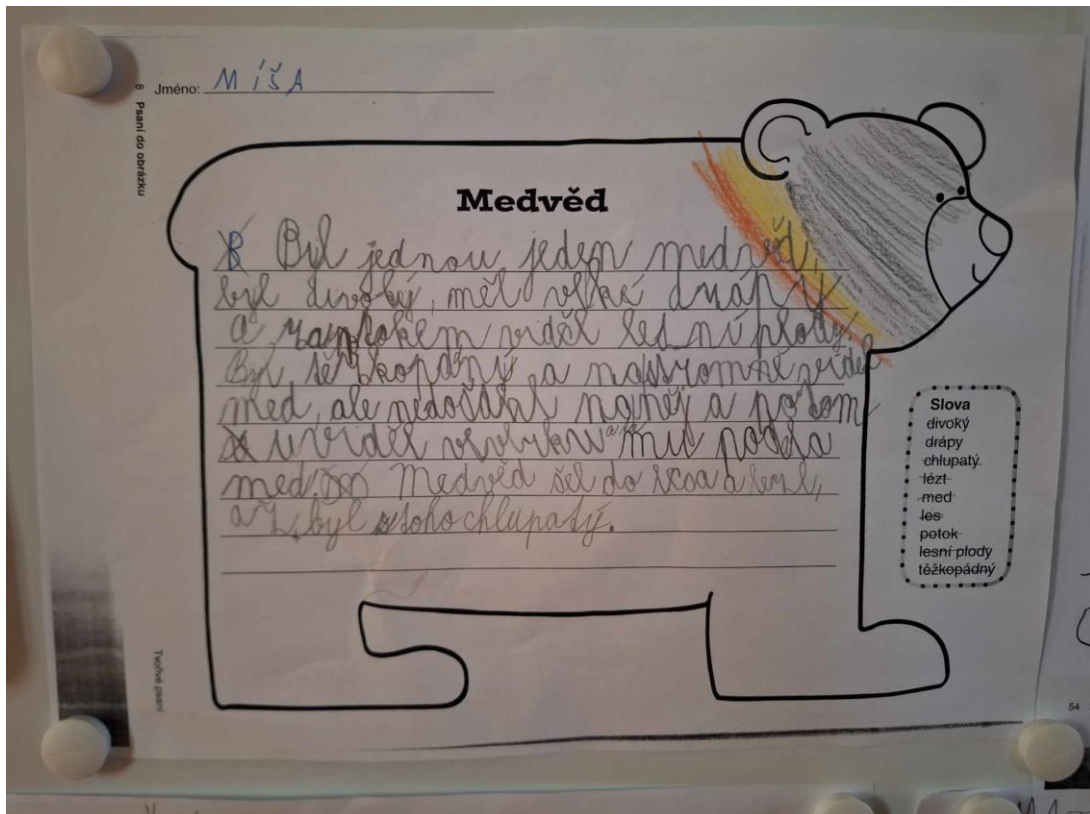 Jméno: MÍŠA
8 Psaní do obrázku
Medvěd
B Byl jednou jeden medvěd,
byl divoký, měl velké drápy
a za potokem viděl lesní plody.
Byl těžkopádný a na stromně viděl
med, ale nedosáhl na něj a potom
uviděl
med. Medvěd šel do lesa a lezl,
až byl z toho chlupatý.
Slova
divoký
drápy
chlupatý
lézt
med
les
potok
lesní plody
těžkopádný
Tvořivé psaní
54